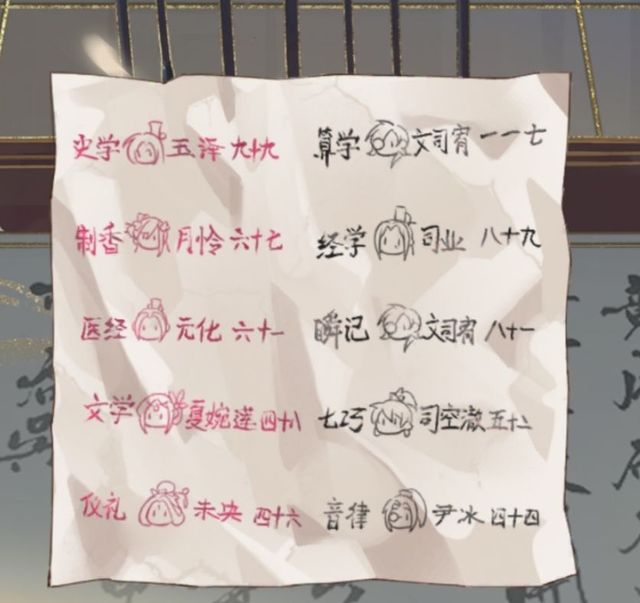 史学 五泽 九十九 算学 文司宥 一一七
制香 月怜 六十七 经学 司业 八十九
医经 元化 六十一 瞬记 文司宥 八十一
文学 夏婉莲 四十八 七巧 司空澈 五十二
仪礼 未央 四十六 音律 尹冰 四十四